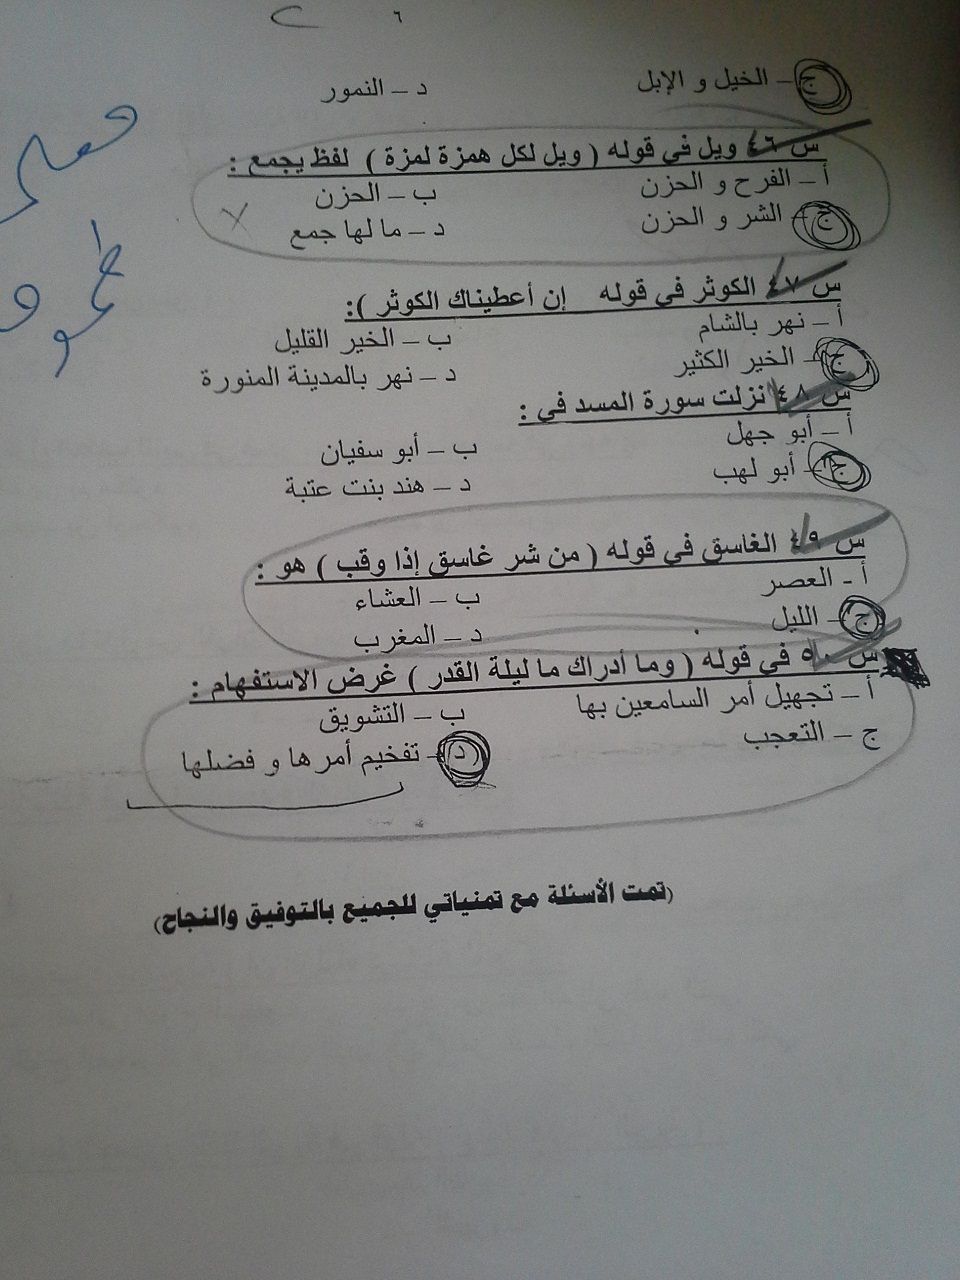 ٦
ج – الخيل و الإبل د – النمور
س ٤٦ ويل في قوله ( ويل لكل همزة لمزة ) لفظ يجمع :
أ – الفرح و الحزن ب – الحزن
ج – الشر و الحزن د – ما لها جمع
س ٤٧ الكوثر في قوله إن أعطيناك الكوثر ):
أ – نهر بالشام ب – الخير القليل
ج – الخير الكثير د – نهر بالمدينة المنورة
س ٤٨ نزلت سورة المسد في :
أ – أبو جهل ب – أبو سفيان
ج – أبو لهب د – هند بنت عتبة
س ٤٩ الغاسق في قوله ( من شر غاسق إذا وقب ) هو :
أ - العصر ب – العشاء
ج – الليل د – المغرب
س ٥٠ في قوله ( وما أدراك ما ليلة القدر ) غرض الاستفهام :
أ – تجهيل أمر السامعين بها ب – التشويق
ج – التعجب د – تفخيم أمرها و فضلها
(تمت الأسئلة مع تمنياتي للجميع بالتوفيق والنجاح)